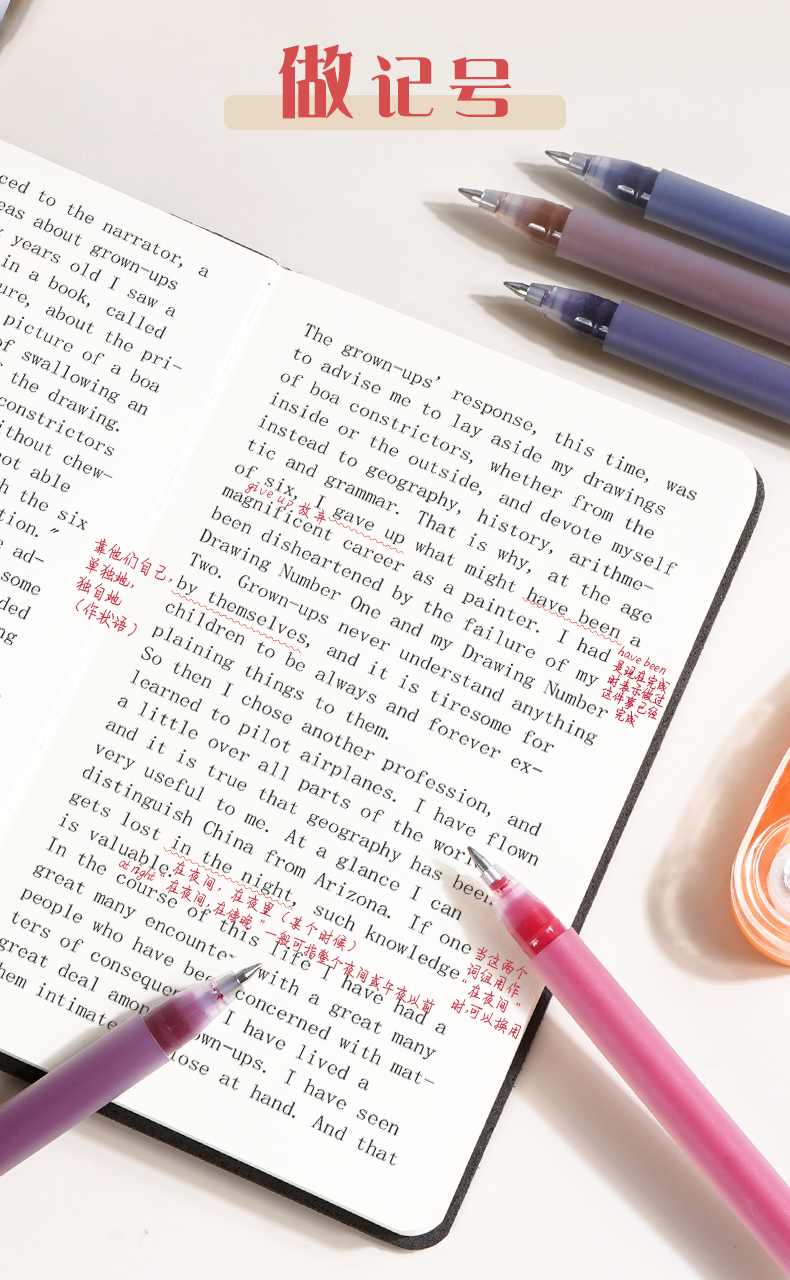 做记号
ced to the narrator, a
eas about grown-ups
years old I saw a
in a book, called
ure, about the pri-
picture of a boa
of swallowing an
the drawing.
constrictors
ithout chew-
not able
h the six
tion."
e ad-
some
ded
ng
The grown-ups' response, this time, was
to advise me to lay aside my drawings
of boa constrictors, whether from the
inside or the outside, and devote myself
instead to geography, history, arithme-
tic and grammar. That is why, at the age
of six, I gave up what might have been a
give up 放弃
magnificent career as a painter. I had
been disheartened by the failure of my
have been
是现在完成
时表示做过
这件事已经
完成
Drawing Number One and my Drawing Number
Two. Grown-ups never understand anything
靠他们自己,
单独地,
独自地
(作状语)
by themselves, and it is tiresome for
children to be always and forever ex-
plaining things to them.
So then I chose another profession, and
learned to pilot airplanes. I have flown
a little over all parts of the wor
and it is true that geography has been
very useful to me. At a glance I can
distinguish China from Arizona. If one
gets lost in the night, such knowledge
is valuable.
at night 在夜间, 在夜里(某个时候)
在夜间,在傍晚" 一般可指整个夜间或午夜以前
当这两个
词组用作
"在夜间"
时,可以换用
In the course of this life I have had a
great many encounte with a great many
people who have bee concerned with mat-
ters of consequen I have lived a
great deal amon own-ups. I have seen
hem intimate lose at hand. And that